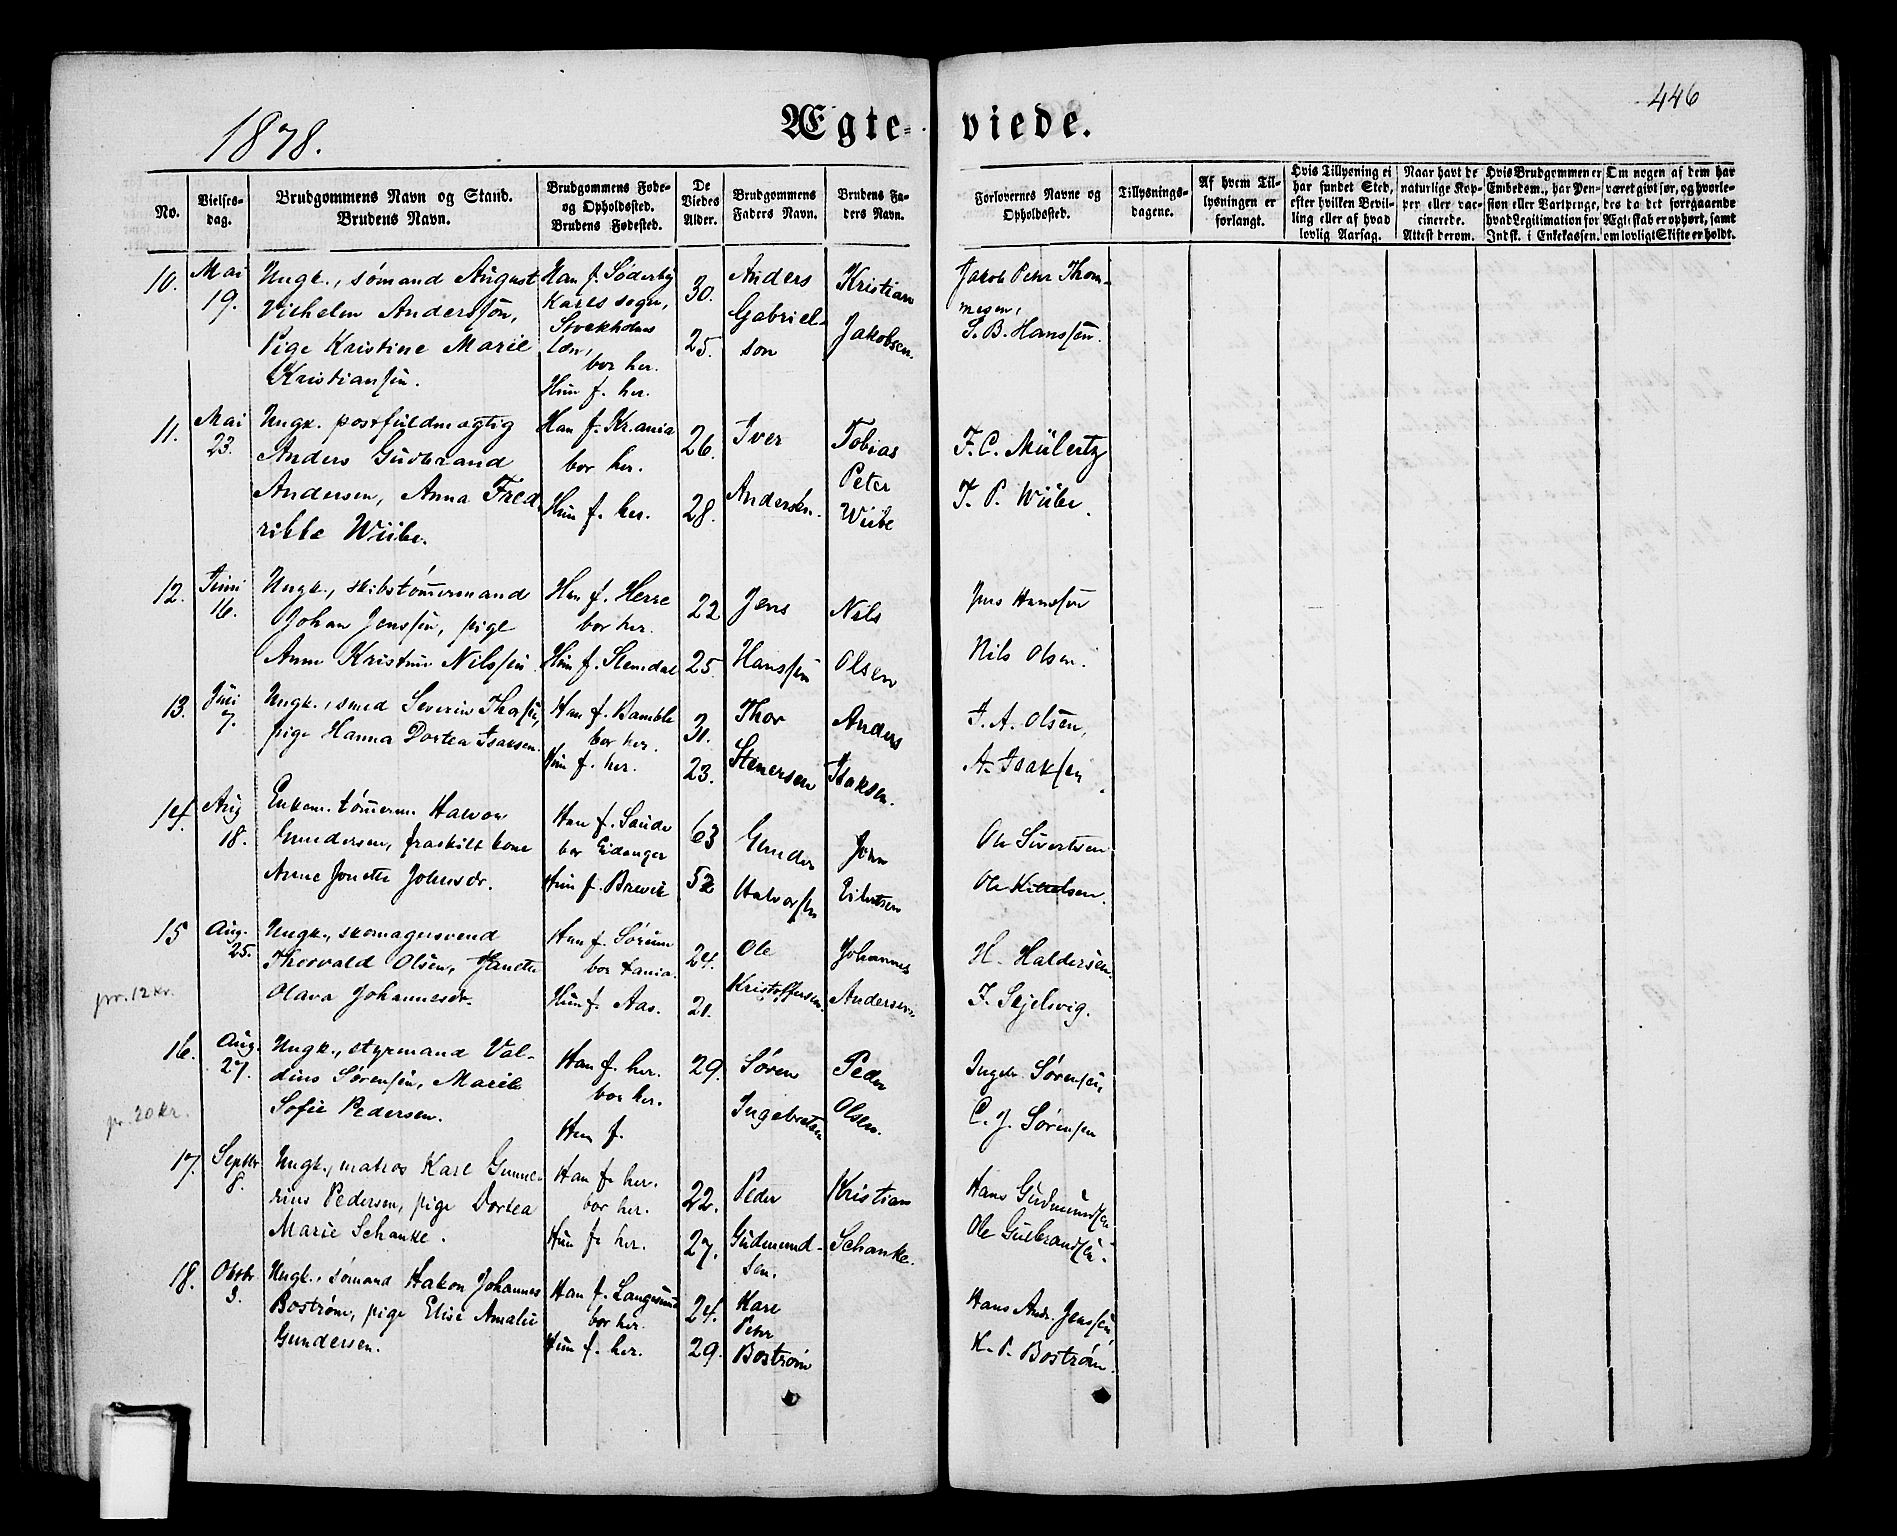 1878.
Ægte-viede.
446
No.
Vielses-
dag.
Brudgommens Navn og Stand.
Brudens Navn.
Brudgommens Føde-
og Opholdssted.
Brudens Fødested.
De
Viedes
Alder.
Brudgommens
Faders Navn.
Brudens Fa-
ders Navn.
Forlovernes Navne og
Opholdssted.
Tillysnings-
dagene.
Af hvem Til-
lysningen er
forlangt.
Hvis Tillysning ei
har fundet Sted,
efter hvilken Bevil-
ling eller af hvad
lovlig Aarsag.
Naar havt de
naturlige Kop-
per eller vac-
cinerede.
Attest derom.
Hvis Brudgommen er
Embedsm., har Pen-
sion eller Vartpenge,
hvad Legitimation for
Indsk. i Enkekassen.
Om nogen af dem har
været gift før, og hvorle-
des da det foregaaende
Ægteskab er ophørt, samt
om lovligt Skifte er holdt.
10.
Mai
19.
Ungk., sømand August
Vilhelm Anderssøn,
Pige Kristine Marie
Kristiansen.
Han f. Söderby
Karls sogn,
Stockholms
län,
bor her.
Hun f. her.
30.
25.
Anders
Gabriel-
son
Kristian
Jakobsen.
Jakob Peter Thom-
mesen,
S. B. Hanssen.
11.
Mai
23.
Ungk. postfuldmægtig
Anders Gudbrand
Andersen, Anna Fred-
rikke Wiibe.
Han f. Kr.ania
bor her.
Hun f. her.
26.
28.
Iver
Andersen.
Tobias
Peter
Wiibe
F. C. Mülertz
T. P. Wiibe.
12.
Juni
16.
Ungk., skibstømmermand
Johan Jenssen, pige
Anne Kristine Nilssen
Han f. Herre
bor her.
Hun f. Stemdal
22
25.
Jens
Hanssen
Nils
Olsen
Jens Hanssen
Nils Olsen.
13.
Juni
7.
Ungk., smed Severin Thorsen,
pige Hanna Dortea Isaksen.
Han f. Bamble
bor her.
Hun f. her.
31.
23.
Thor
Stenersen
Anders
Isaksen.
I. A. Olsen,
A. Isaksen
14.
Aug
18.
Enkem. tømmerm. Halvor
Gundersen, fraskilt kone
Anne Jonette Johnsdr.
Han f. Saude
bor Eidanger
Hun f. Brevik
63
52
Gunder
Halvorsen
John
Eilertsen
Ole Sivertsen
Ole Kittelsen.
15
Aug.
25.
Ungk., skomagersvend
Thorvald Olsen, Janette
Olava Johannesdr.
Han f. Sørum
bor Xania.
Hun f. Aas.
24.
21.
Ole
Kristoffersen.
Johannes
Andersen
H. Haldersen.
J. Skjelsvig.
pr. 12 kr.
16.
Aug.
27.
Ungk., styrmand Val-
dius Sørensen, Marie
Sofie Pedersen.
Han f. her.
bor her.
Hun f.
29.
Søren
Ingebretsen
Peder
Olsen.
Ingebr. Sørensen
C. J. Sørensen
pr. 20 kr.
17.
Septbr
8.
Ungk., matros Karl Gunne-
rius Pedersen, pige Dortea
Marie Schanke.
Han f. her.
bor her.
Hun f. her.
22.
27.
Peder
Gudmund-
sen.
Kristian
Schanke.
Hans Gudmundsen
Ole Gulbrandsen.
18.
Oktbr.
3.
Ungk., sømand Hakon Johannes
Bostrøm, pige Elise Amalie
Gundersen.
Han f. Langesund
bor her.
Hun f. her.
24.
29.
Karl
Peter
Bostrøm
Hans Andr. Jenssen,
K. P. Bostrøm.